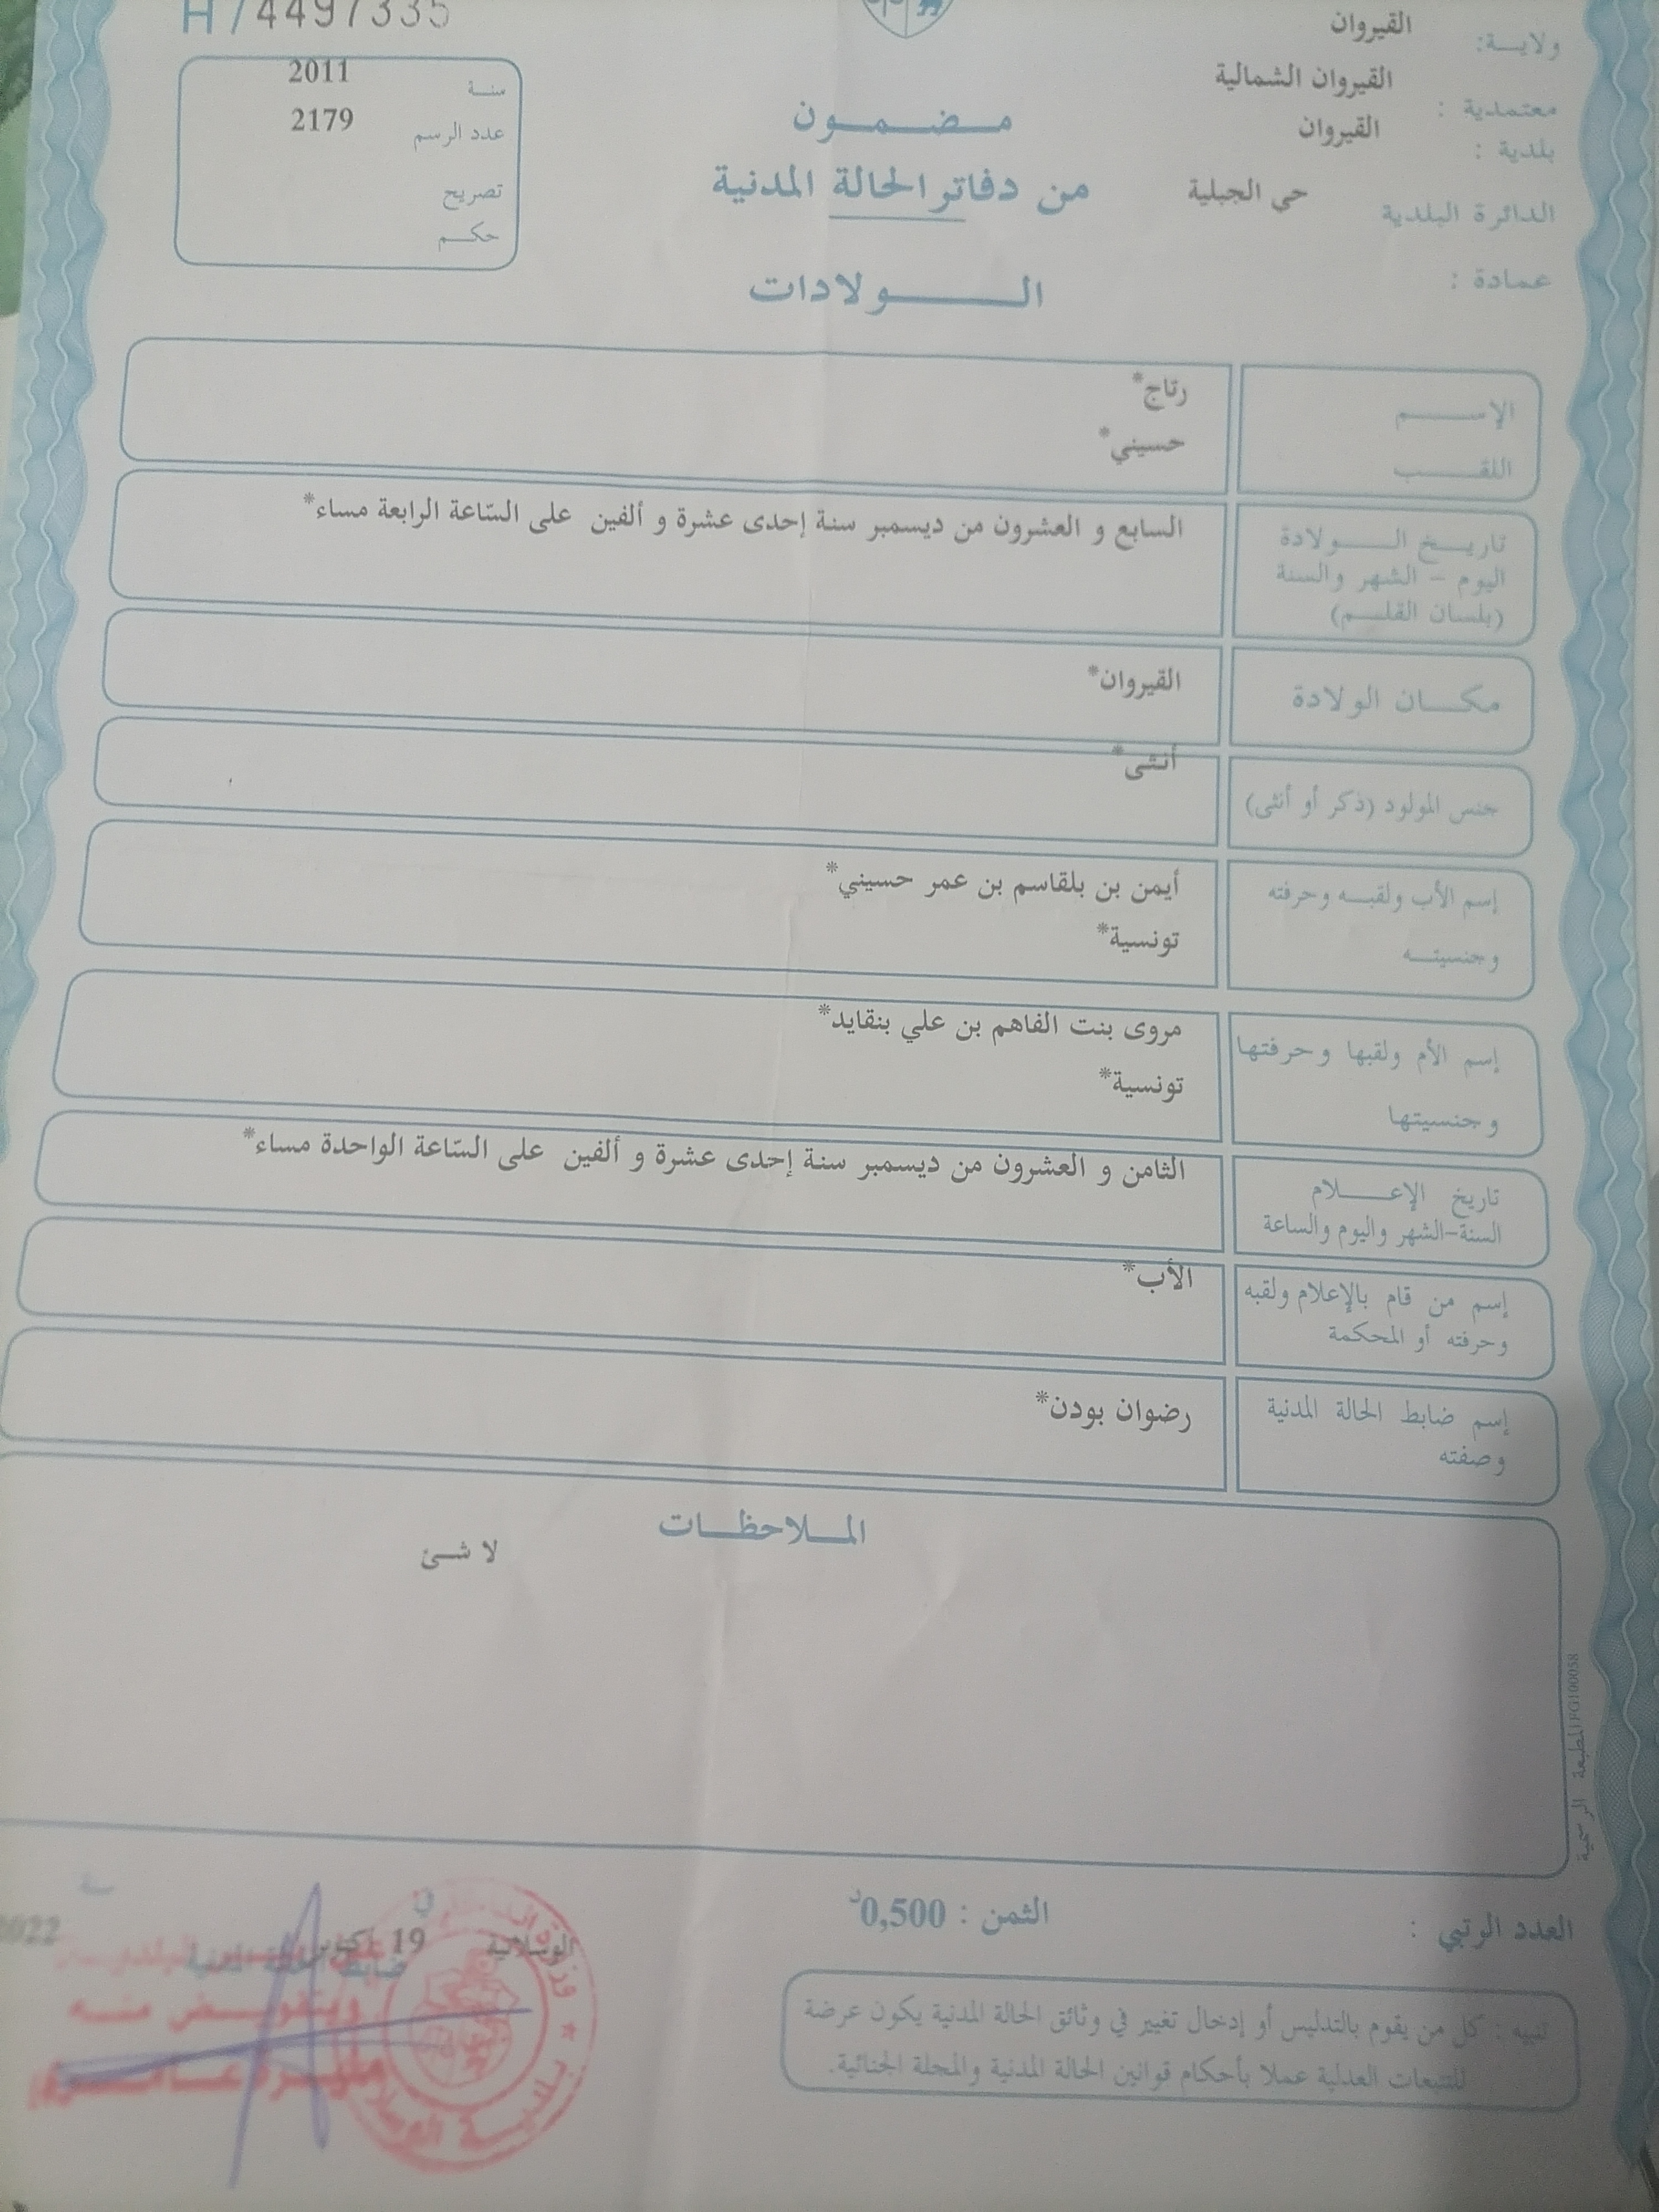 H74497335
ولايـــة: القيروان
معتمدية : القيروان الشمالية
بلدية : القيروان
الدائرة البلدية حي الجبلية
عمادة :
سنــة 2011
عدد الرسم 2179
تصريح
حكــم
مــضــمــون
من دفاتر الحالة المدنية
الــــولادات
الإســــم رتاج*
اللقــــب حسيني*
تاريــخ الــــولادة
اليوم - الشهر والسنة
(بلسان القلــم)
السابع و العشرون من ديسمبر سنة إحدى عشرة و ألفين على السّاعة الرابعة مساء*
مكـــان الولادة القيروان*
جنس المولود (ذكر أو أنثى) أنثى*
إسم الأب ولقبــه وحرفته أيمن بن بلقاسم بن عمر حسيني*
وجنسيتــه تونسية*
إسم الأم ولقبها وحرفتها مروى بنت الفاهم بن علي بنقايد*
وجنسيتها تونسية*
تاريخ الإعــــلام
السنة-الشهر واليوم والساعة
الثامن و العشرون من ديسمبر سنة إحدى عشرة و ألفين على السّاعة الواحدة مساء*
إسم من قام بالإعلام ولقبه
وحرفته أو المحكمة
الأب*
إسم ضابط الحالة المدنية
وصفته
رضوان بودن*
المــلاحظــات
لا شــئ
المطبعة الرسمية
العدد الرتبي :
الثمن : 0,500د
الوسلاتية في 19 أكتوبر 2022
ضابط الحالة المدنية
وبتفويــض منــه
تنبيه : كل من يقوم بالتدليس أو إدخال تغيير في وثائق الحالة المدنية يكون عرضة
للتتبعات العدلية عملا بأحكام قوانين الحالة المدنية والمجلة الجنائية.